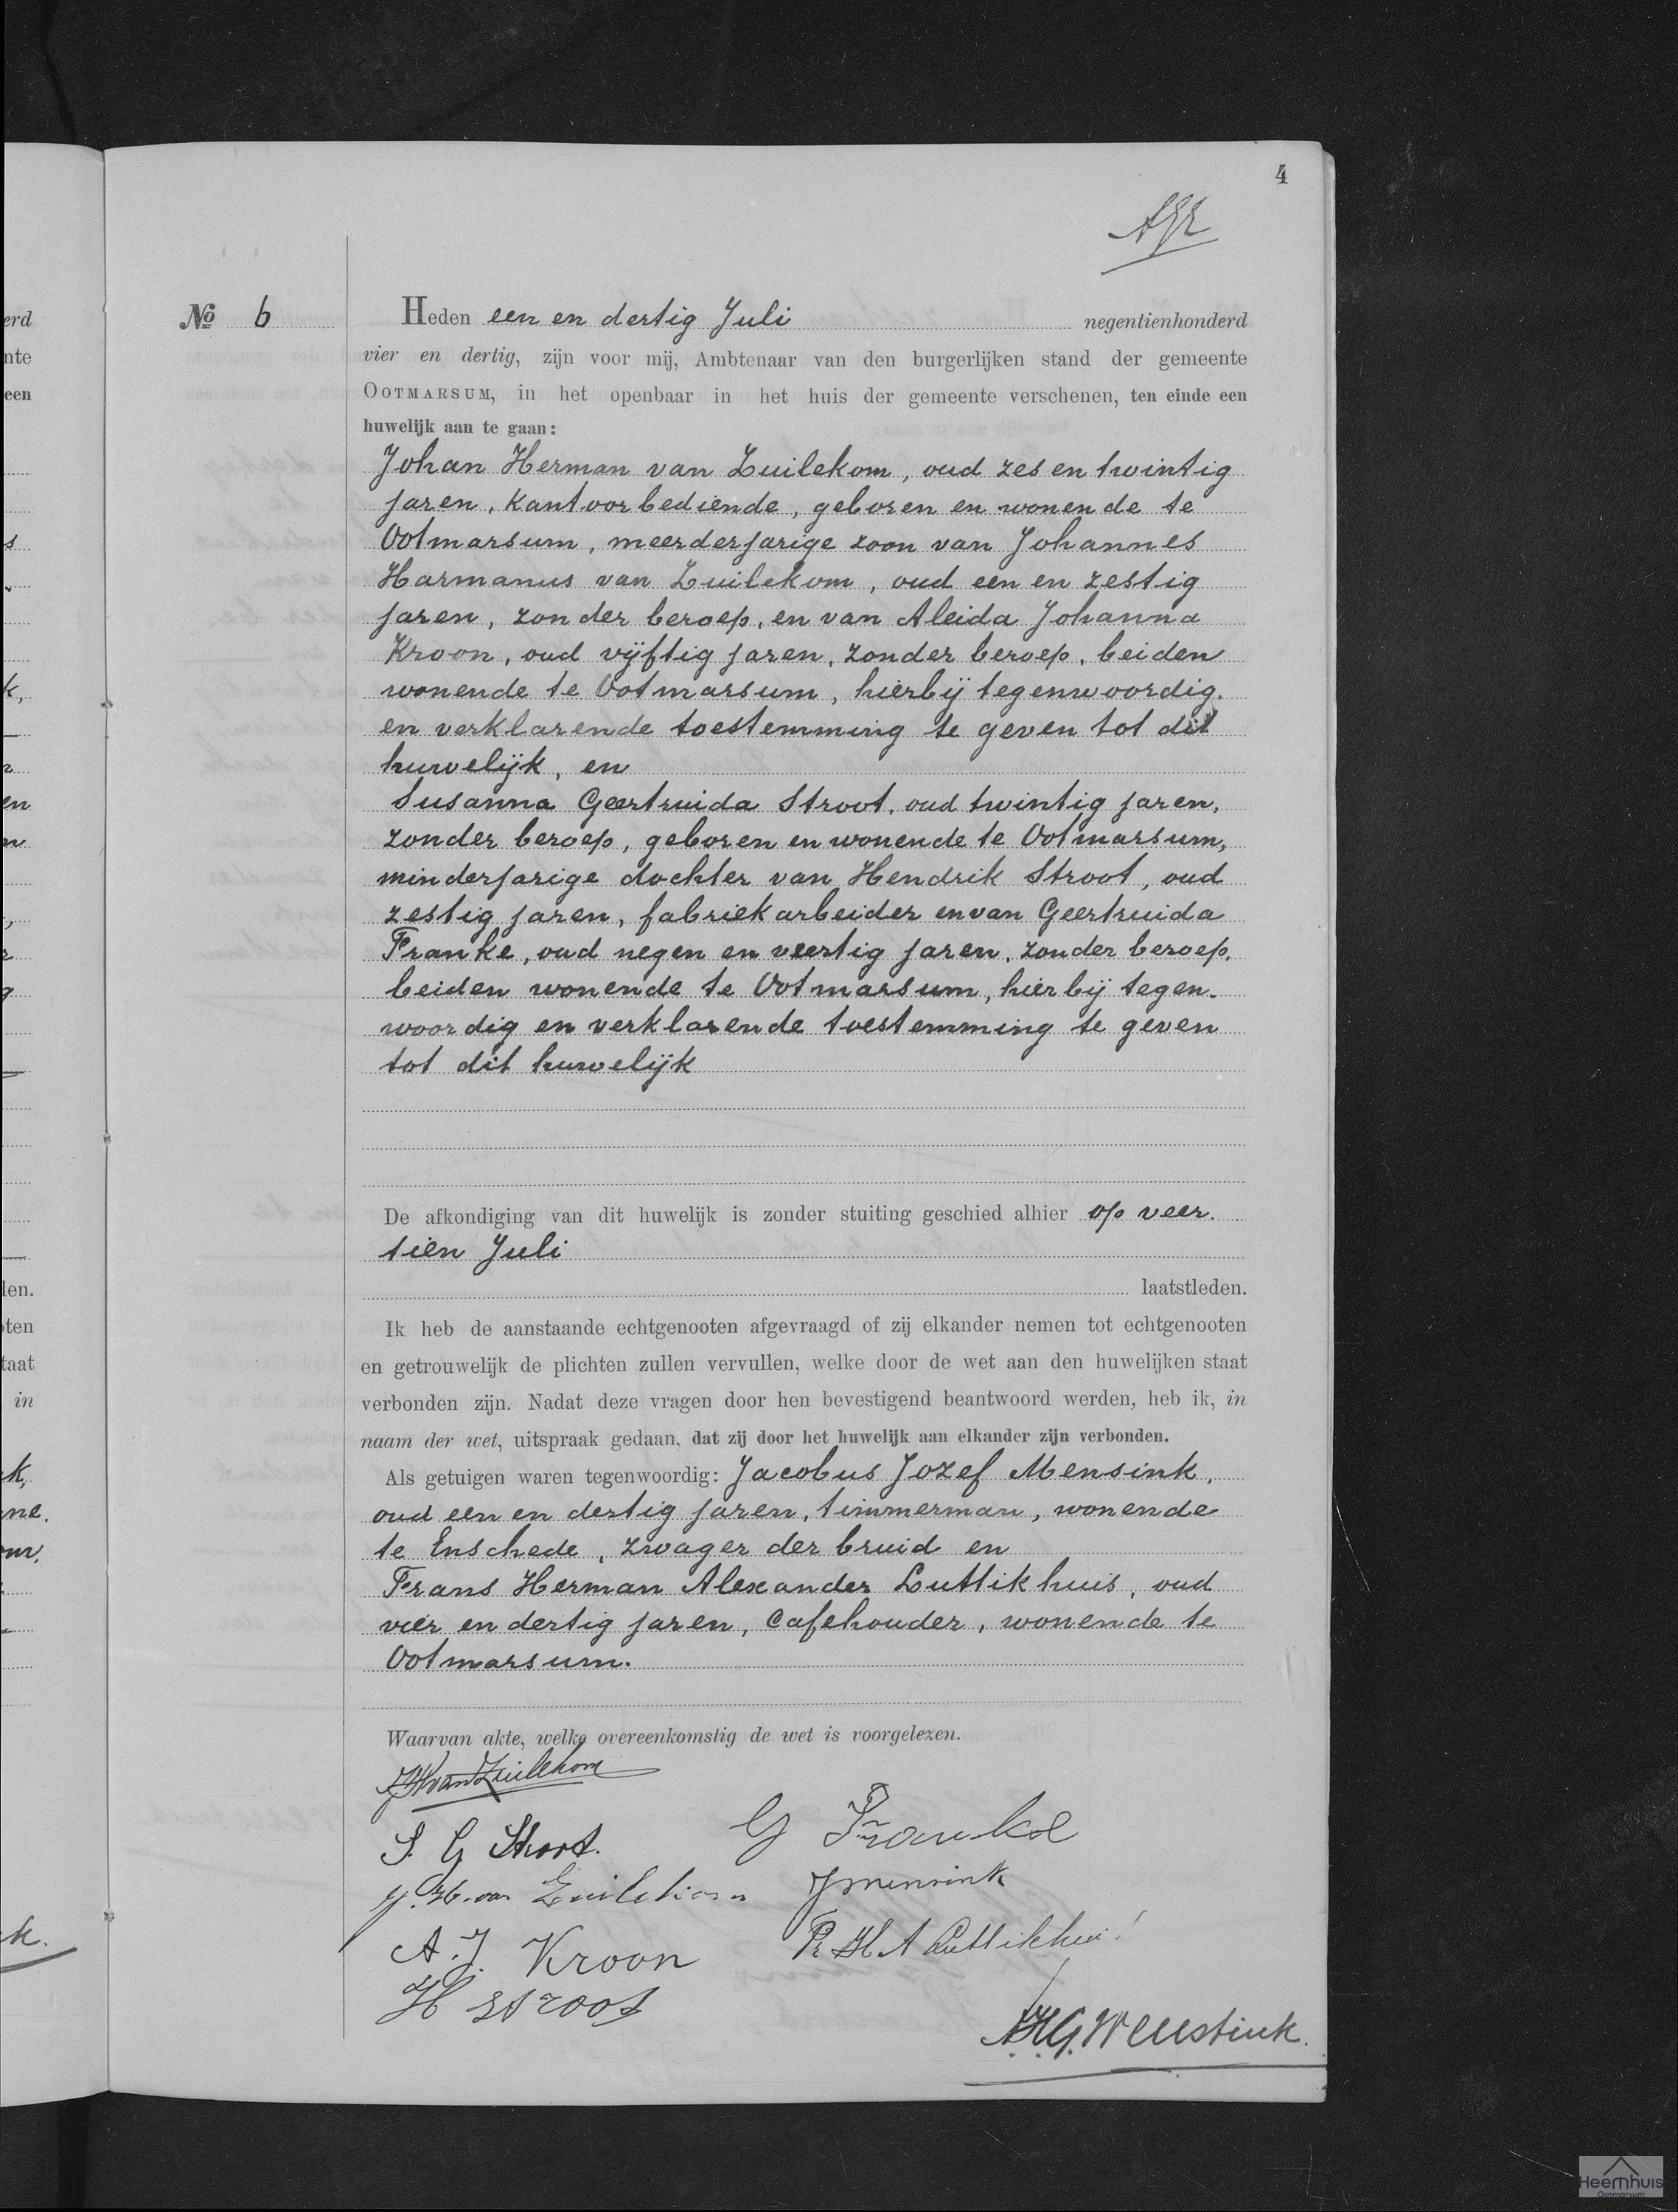 4
No 6
Heden een en dertig Juli negentienhonderd
vier en dertig, zijn voor mij, Ambtenaar van den burgerlijken stand der gemeente
OOTMARSUM, in het openbaar in het huis der gemeente verschenen, ten einde een
huwelijk aan te gaan:
Johan Herman van Zuilekom, oud zes en twintig
jaren, kantoorbediende, geboren en wonende te
Ootmarsum, meerderjarige zoon van Johannes
Harmanus van Zuilekom, oud een en zestig
jaren, zonder beroep, en van Aleida Johanna
Kroon, oud vijftig jaren, zonder beroep, beiden
wonende te Ootmarsum, hierbij tegenwoordig.
en verklarende toestemming te geven tot dit
huwelijk, en
Susanna Geertruida Stroot, oud twintig jaren,
zonder beroep, geboren en wonende te Ootmarsum,
minderjarige dochter van Hendrik Stroot, oud
zestig jaren, fabriekarbeider en van Geertruida
Franke, oud negen en veertig jaren, zonder beroep,
beiden wonende te Ootmarsum, hierbij tegen-
woordig en verklarende toestemming te geven
tot dit huwelijk
De afkondiging van dit huwelijk is zonder stuiting geschied alhier op veer-
tien Juli
laatstleden.
Ik heb de aanstaande echtgenooten afgevraagd of zij elkander nemen tot echtgenooten
en getrouwelijk de plichten zullen vervullen, welke door de wet aan den huwelijken staat
verbonden zijn. Nadat deze vragen door hen bevestigend beantwoord werden, heb ik, in
naam der wet, uitspraak gedaan, dat zij door het huwelijk aan elkander zijn verbonden.
Als getuigen waren tegenwoordig: Jacobus Jozef Mensink,
oud een en dertig jaren, timmerman, wonende
te Enschede, zwager der bruid en
Frans Herman Alexander Luttikhuis, oud
vier en dertig jaren, cafehouder, wonende te
Ootmarsum.
Waarvan akte, welke overeenkomstig de wet is voorgelezen.
JH van Zuilekom
S. G Stroot.
G Franke
J. H. van Zuilekom
J Mensink
A. J. Kroon
F H A Luttikhuis
H Stroot
Heemhuis
Ootmarsum